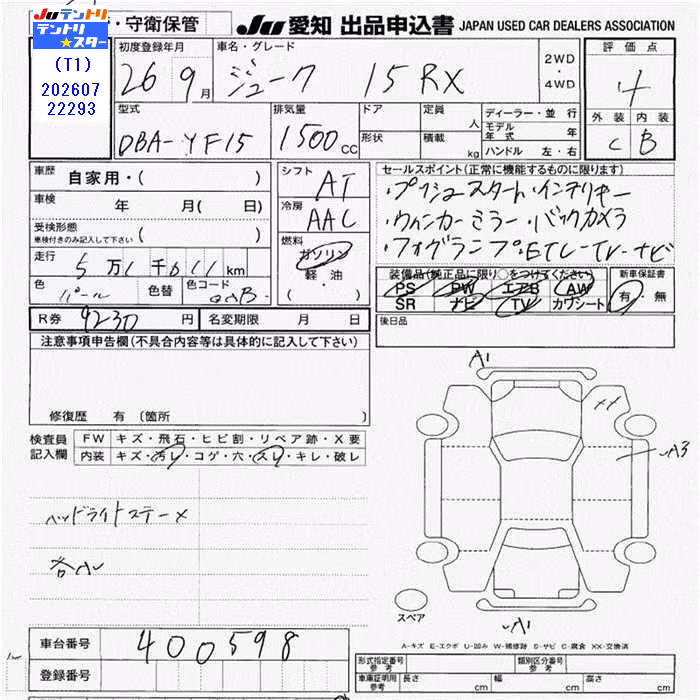 JUテントリ
テントリ★スター
・守衛保管
JU 愛知 出品申込書 JAPAN USED CAR DEALERS ASSOCIATION
(T1)
202607
22293
初度登録年月
26 9月
車名・グレード
ジューク 15RX
2WD
・
4WD
評価点
4
外装 内装
C B
型式
DBA-YF15
排気量
1500cc
ドア
形状
定員
人
積載
kg
ディーラー・並行
モデル年式 年
ハンドル 左・右
車歴 自家用・( )
車検 年 月( 日)
受検形態
車検付きのみ記入して下さい ( )
走行 5万1千611km
色 パール 色替 色コード
シフト AT
冷房 AAC
燃料 ガソリン
軽・油
・( )
セールスポイント(正常に機能するものに限ります)
・プッシュスタート・インテリキー
・ウィンカーミラー・バックカメラ
・フォグランプ・ETC・TV・ナビ
装備品(純正品に限り○をつけてください)
PS PW エアB AW
SR ナビ TV カワシート
新車保証書
有・無
R券 9230円 名変期限 月 日
後日品
注意事項申告欄(不具合内容等は具体的に記入して下さい)
修復歴 有(箇所 )
検査員記入欄
FW キズ・飛石・ヒビ割・リペア跡・X要
内装 キズ・汚レ・コゲ・穴・スレ・キレ・破レ
ヘッドライトステーメ
各小
A1
XX
A3
A1
スペア
A-キズ E-エクボ U-凹み W-補修跡 S-サビ C-腐食 XX-交換済
車台番号 400598
登録番号
形式指定番号 参考
類別区分番号 参考
車庫証明用 参考 長さ cm 幅 cm 高さ cm